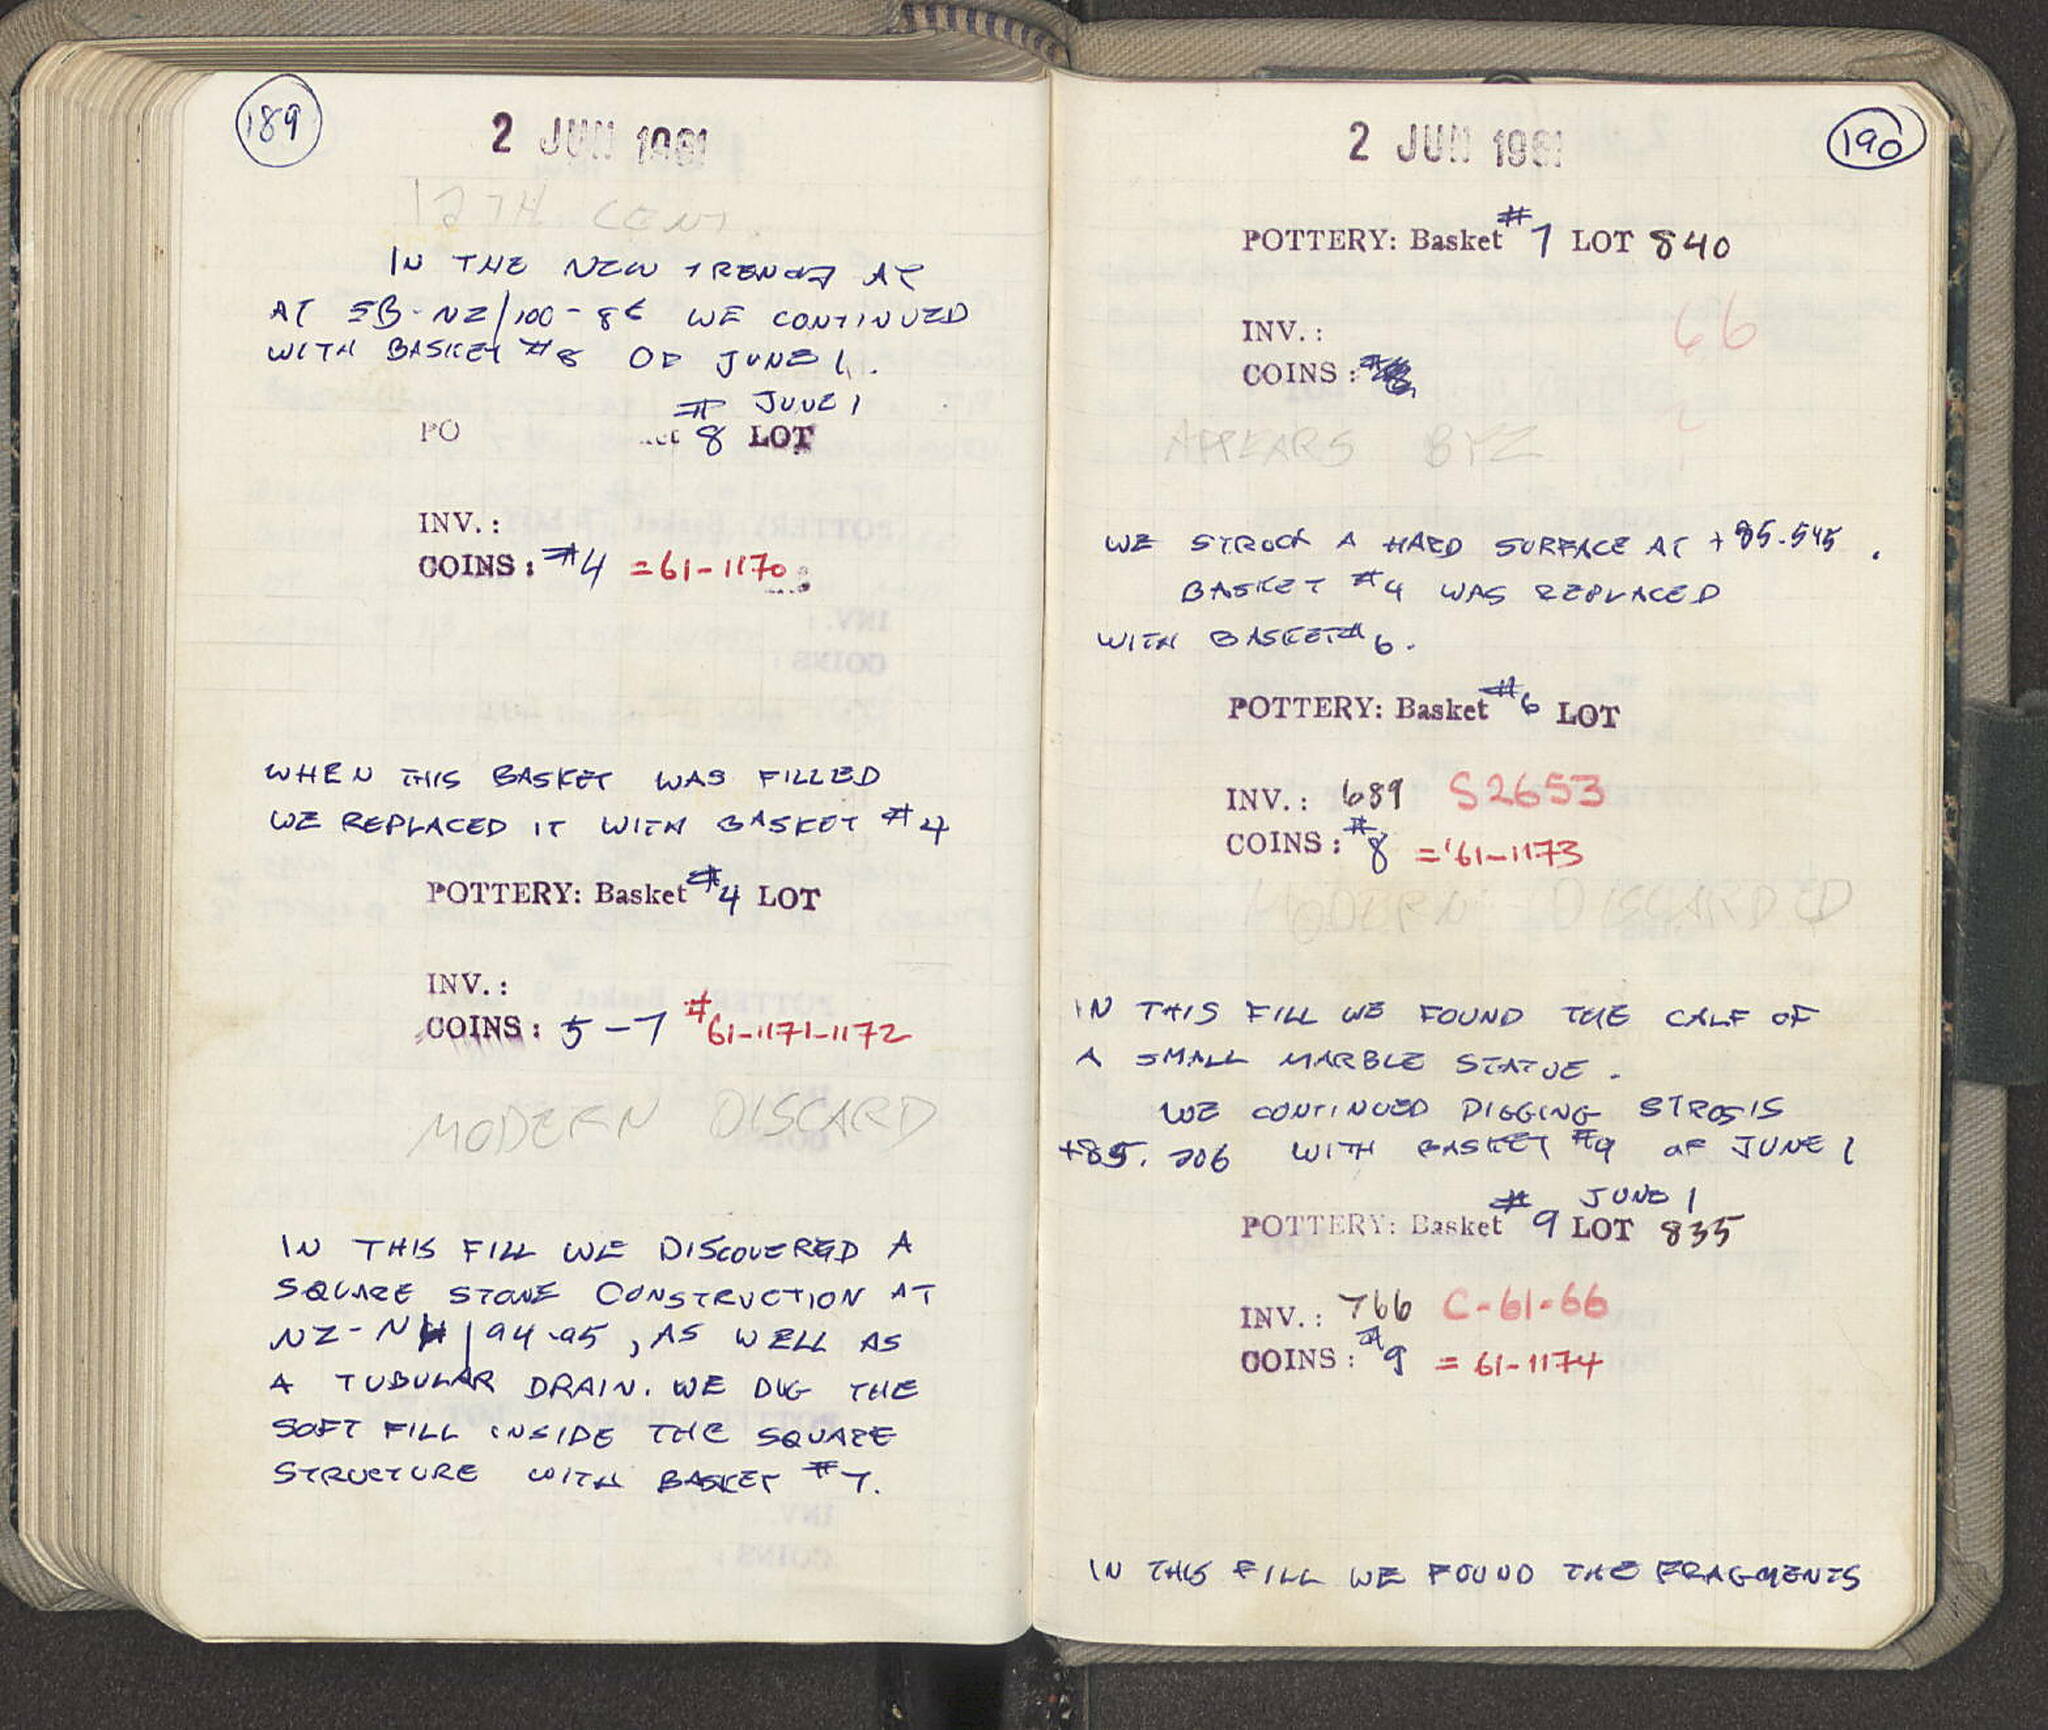 189
2 JUN 1961
12TH CENT.
IN THE NEW TRENCH AT
AT SB-NZ/100-86 WE CONTINUED
WITH BASKET #8 OF JUNE 1.
# JUNE 1
PO ket 8 LOT
INV.:
COINS: #4 =61-1170
WHEN THIS BASKET WAS FILLED
WE REPLACED IT WITH BASKET #4
POTTERY: Basket #4 LOT
INV.:
COINS: 5-7 #61-1171-1172
MODERN DISCARD
IN THIS FILL WE DISCOVERED A
SQUARE STONE CONSTRUCTION AT
NZ-NH/94-95, AS WELL AS
A TUBULAR DRAIN. WE DUG THE
SOFT FILL INSIDE THE SQUARE
STRUCTURE WITH BASKET #7.
190
2 JUN 1961
POTTERY: Basket #7 LOT 840
66
INV.:
COINS:
APPEARS BYZ
WE STRUCK A HARD SURFACE AT +85.545.
BASKET #4 WAS REPLACED
WITH BASKET #6.
POTTERY: Basket #6 LOT
INV.: 689 S2653
COINS: #8 ='61-1173
MODERN DISCARDED
IN THIS FILL WE FOUND THE CALF OF
A SMALL MARBLE STATUE.
WE CONTINUED DIGGING STROSIS
+85.206 WITH BASKET #9 OF JUNE 1
JUNE 1
POTTERY: Basket #9 LOT 835
INV.: 766 C-61-66
COINS: #9 = 61-1174
IN THIS FILL WE FOUND THE FRAGMENTS